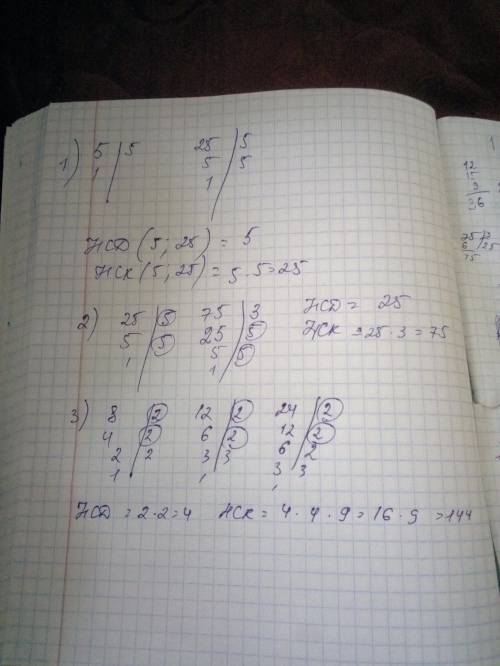 1) 5 | 5 25 | 5
1 | 5 | 5
1
НСД (5; 25) = 5
НСК (5; 25) = 5·5=25
2) 25 | 5 75 | 3 НСД = 25
5 | 5 25 | 5 НСК =25·3=75
1 | 5 | 5
1
3) 8 | 2 12 | 2 24 | 2
4 | 2 6 | 2 12 | 2
2 | 2 3 | 3 6 | 2
1 | 1 3 | 3
1
НСД = 2·2=4 НСК = 4·4·9=16·9=144
12
3
36
75